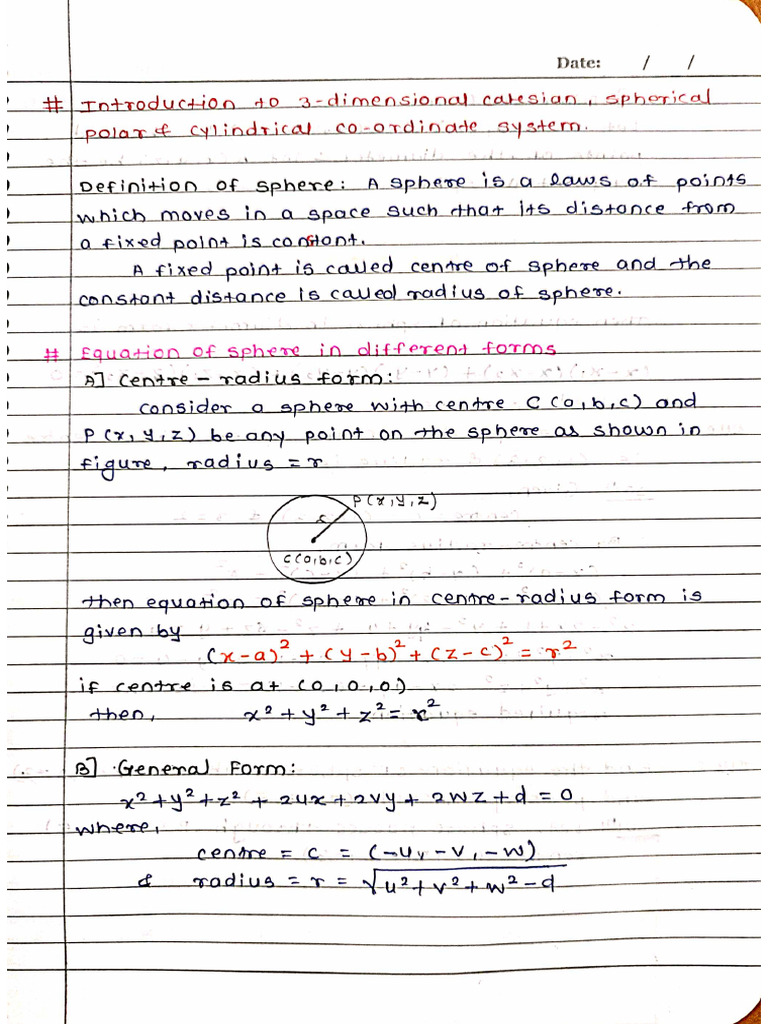 Date: / /
# Introduction to 3-dimensional catesian, spherical
polar & cylindrical co-ordinate system.
Definition of sphere: A sphere is a laws of points
which moves in a space such that its distance from
a fixed point is constant.
A fixed point is called centre of sphere and the
constant distance is called radius of sphere.
# Equation of sphere in different forms
A] centre - radius form:
consider a sphere with centre C(a,b,c) and
P(x,y,z) be any point on the sphere as shown in
figure, radius = r
P(x,y,z)
r
C(a,b,c)
then equation of sphere in centre-radius form is
given by
(x-a)² + (y-b)² + (z-c)² = r²
if centre is at (0,0,0)
then, x² + y² + z² = r²
B] General Form:
x² + y² + z² + 2ux + 2vy + 2wz + d = 0
where,
centre = c = (-u, -v, -w)
& radius = r = √u² + v² + w² - d